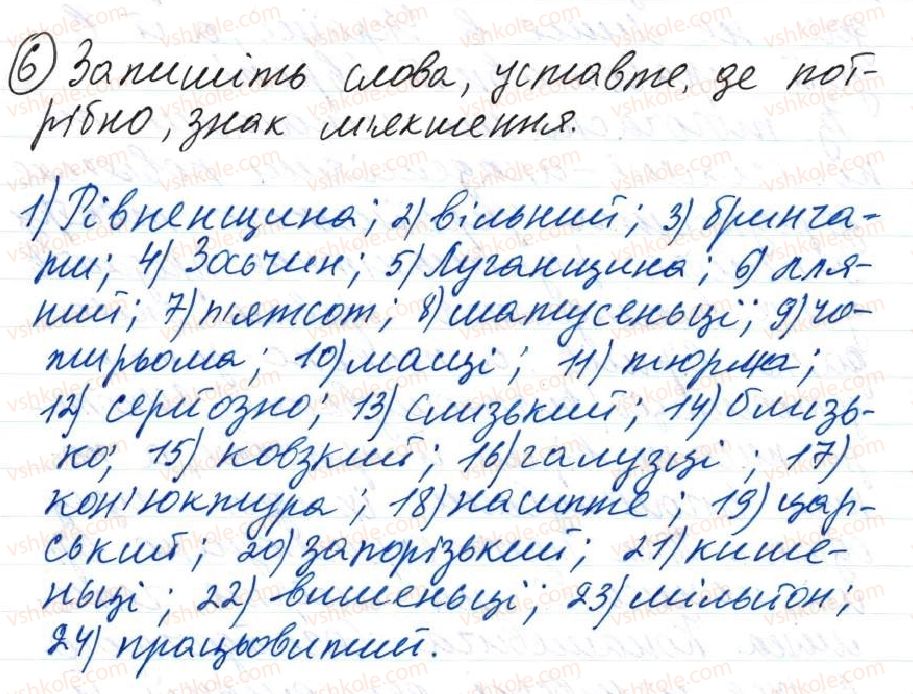 6 Запишіть слова, уставте, де пот-
рібно, знак м'якшення.
1) Рівненщина; 2) вільний; 3) бринча-
ти; 4) Зосьчин; 5) Луганщина; 6) лля-
ний; 7) п'ятсот; 8) матусеньці; 9) чо-
тирьома; 10) масці; 11) тюрма;
12) серйозно; 13) слизький; 14) близь-
ко; 15) ковзкий; 16) галузці; 17)
кон'юктура; 18) насипте; 19) цар-
ський; 20) запорізький; 21) кише-
ньці; 22) вишеньці; 23) мільйон;
24) працьовитий.